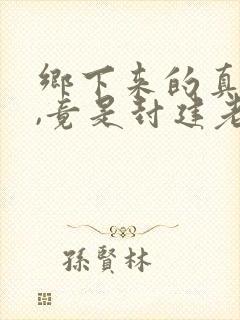 鄉下來的真
,竟是封建老
孫賢林